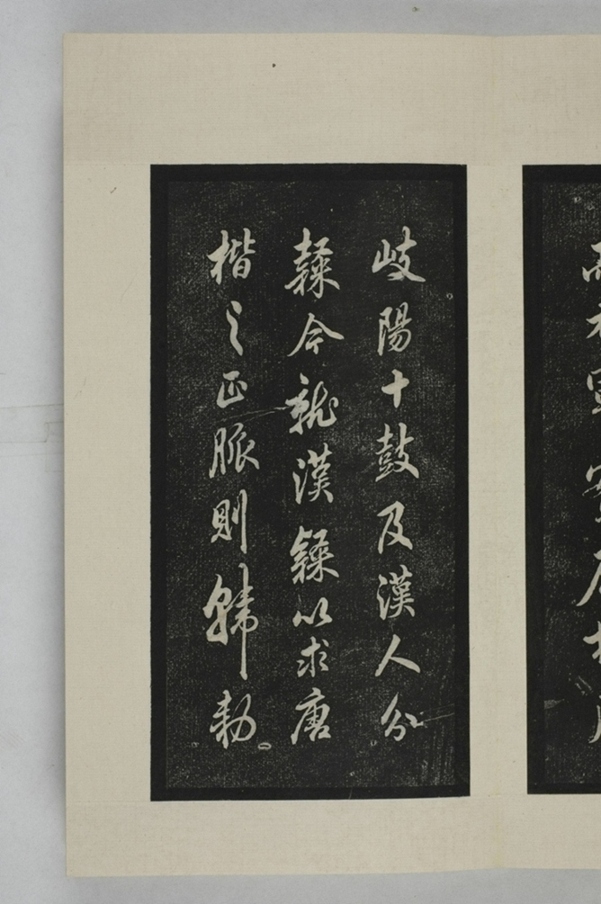 岐陽十鼓及漢人分
隸今就漢隸以求唐
楷之正脈則韓勑